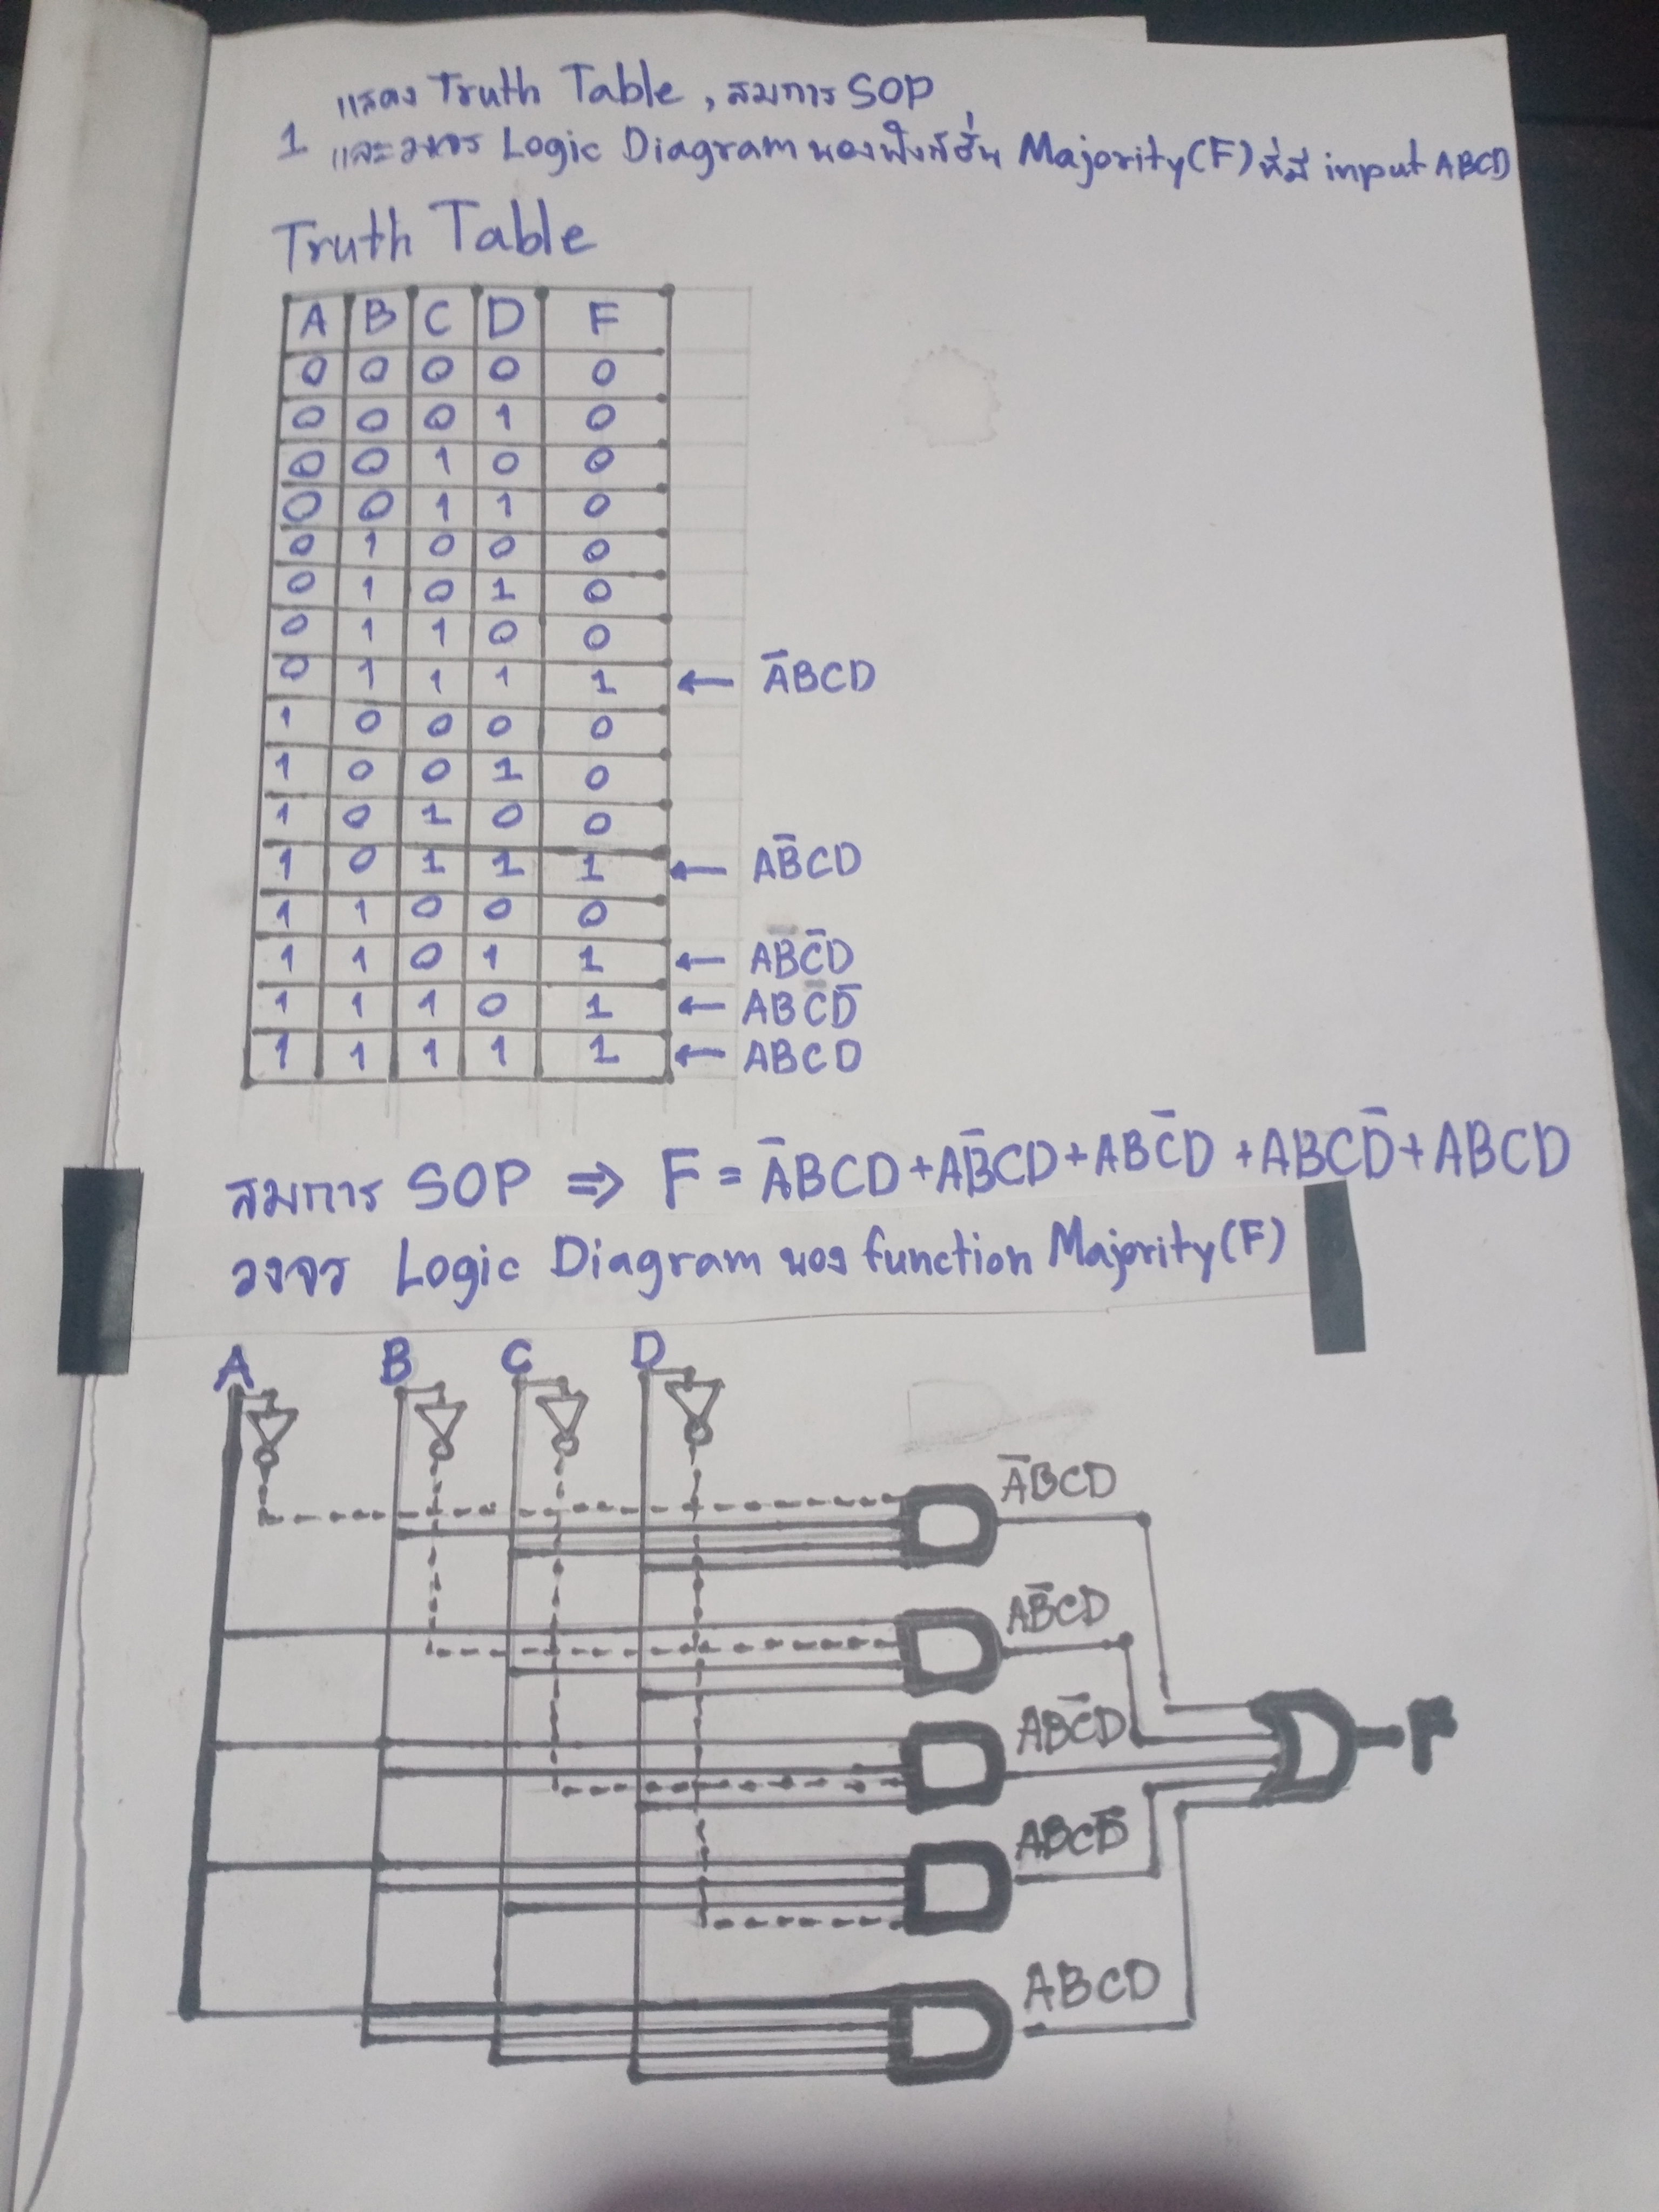 แสดง Truth Table, สมการ SOP
1 และวงจร Logic Diagram ของฟังก์ชั่น Majority(F) ที่มี input ABCD
Truth Table
A B C D F
0 0 0 0 0
0 0 0 1 0
0 0 1 0 0
0 0 1 1 0
0 1 0 0 0
0 1 0 1 0
0 1 1 0 0
0 1 1 1 1 ← A̅BCD
1 0 0 0 0
1 0 0 1 0
1 0 1 0 0
1 0 1 1 1 ← AB̅CD
1 1 0 0 0
1 1 0 1 1 ← ABC̅D
1 1 1 0 1 ← ABCD̅
1 1 1 1 1 ← ABCD
สมการ SOP ⇒ F = A̅BCD + AB̅CD + ABC̅D + ABCD̅ + ABCD
วงจร Logic Diagram ของ function Majority(F)
A B C D
A̅BCD
AB̅CD
ABC̅D
F
ABCD̅
ABCD